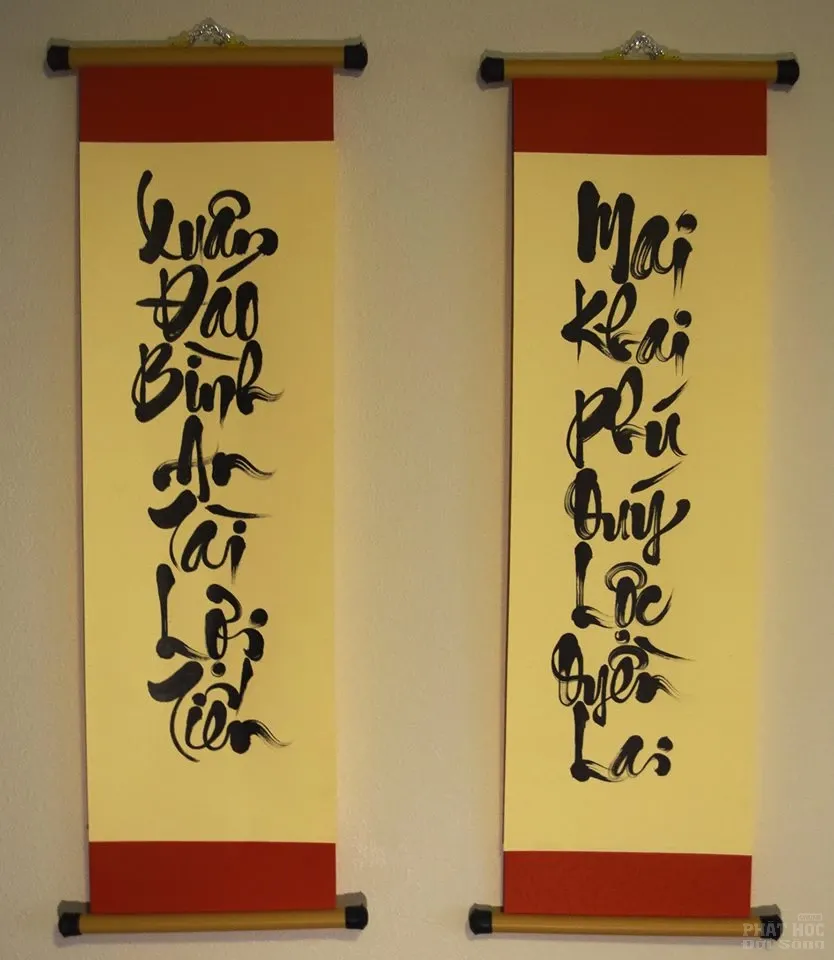 Xuân
Đáo
Bình
An
Tài
Lợi
Tiến
Mai
Khai
Phú
Quý
Lộc
Quyền
Lai
PHẬT HỌC
ĐỜI SỐNG